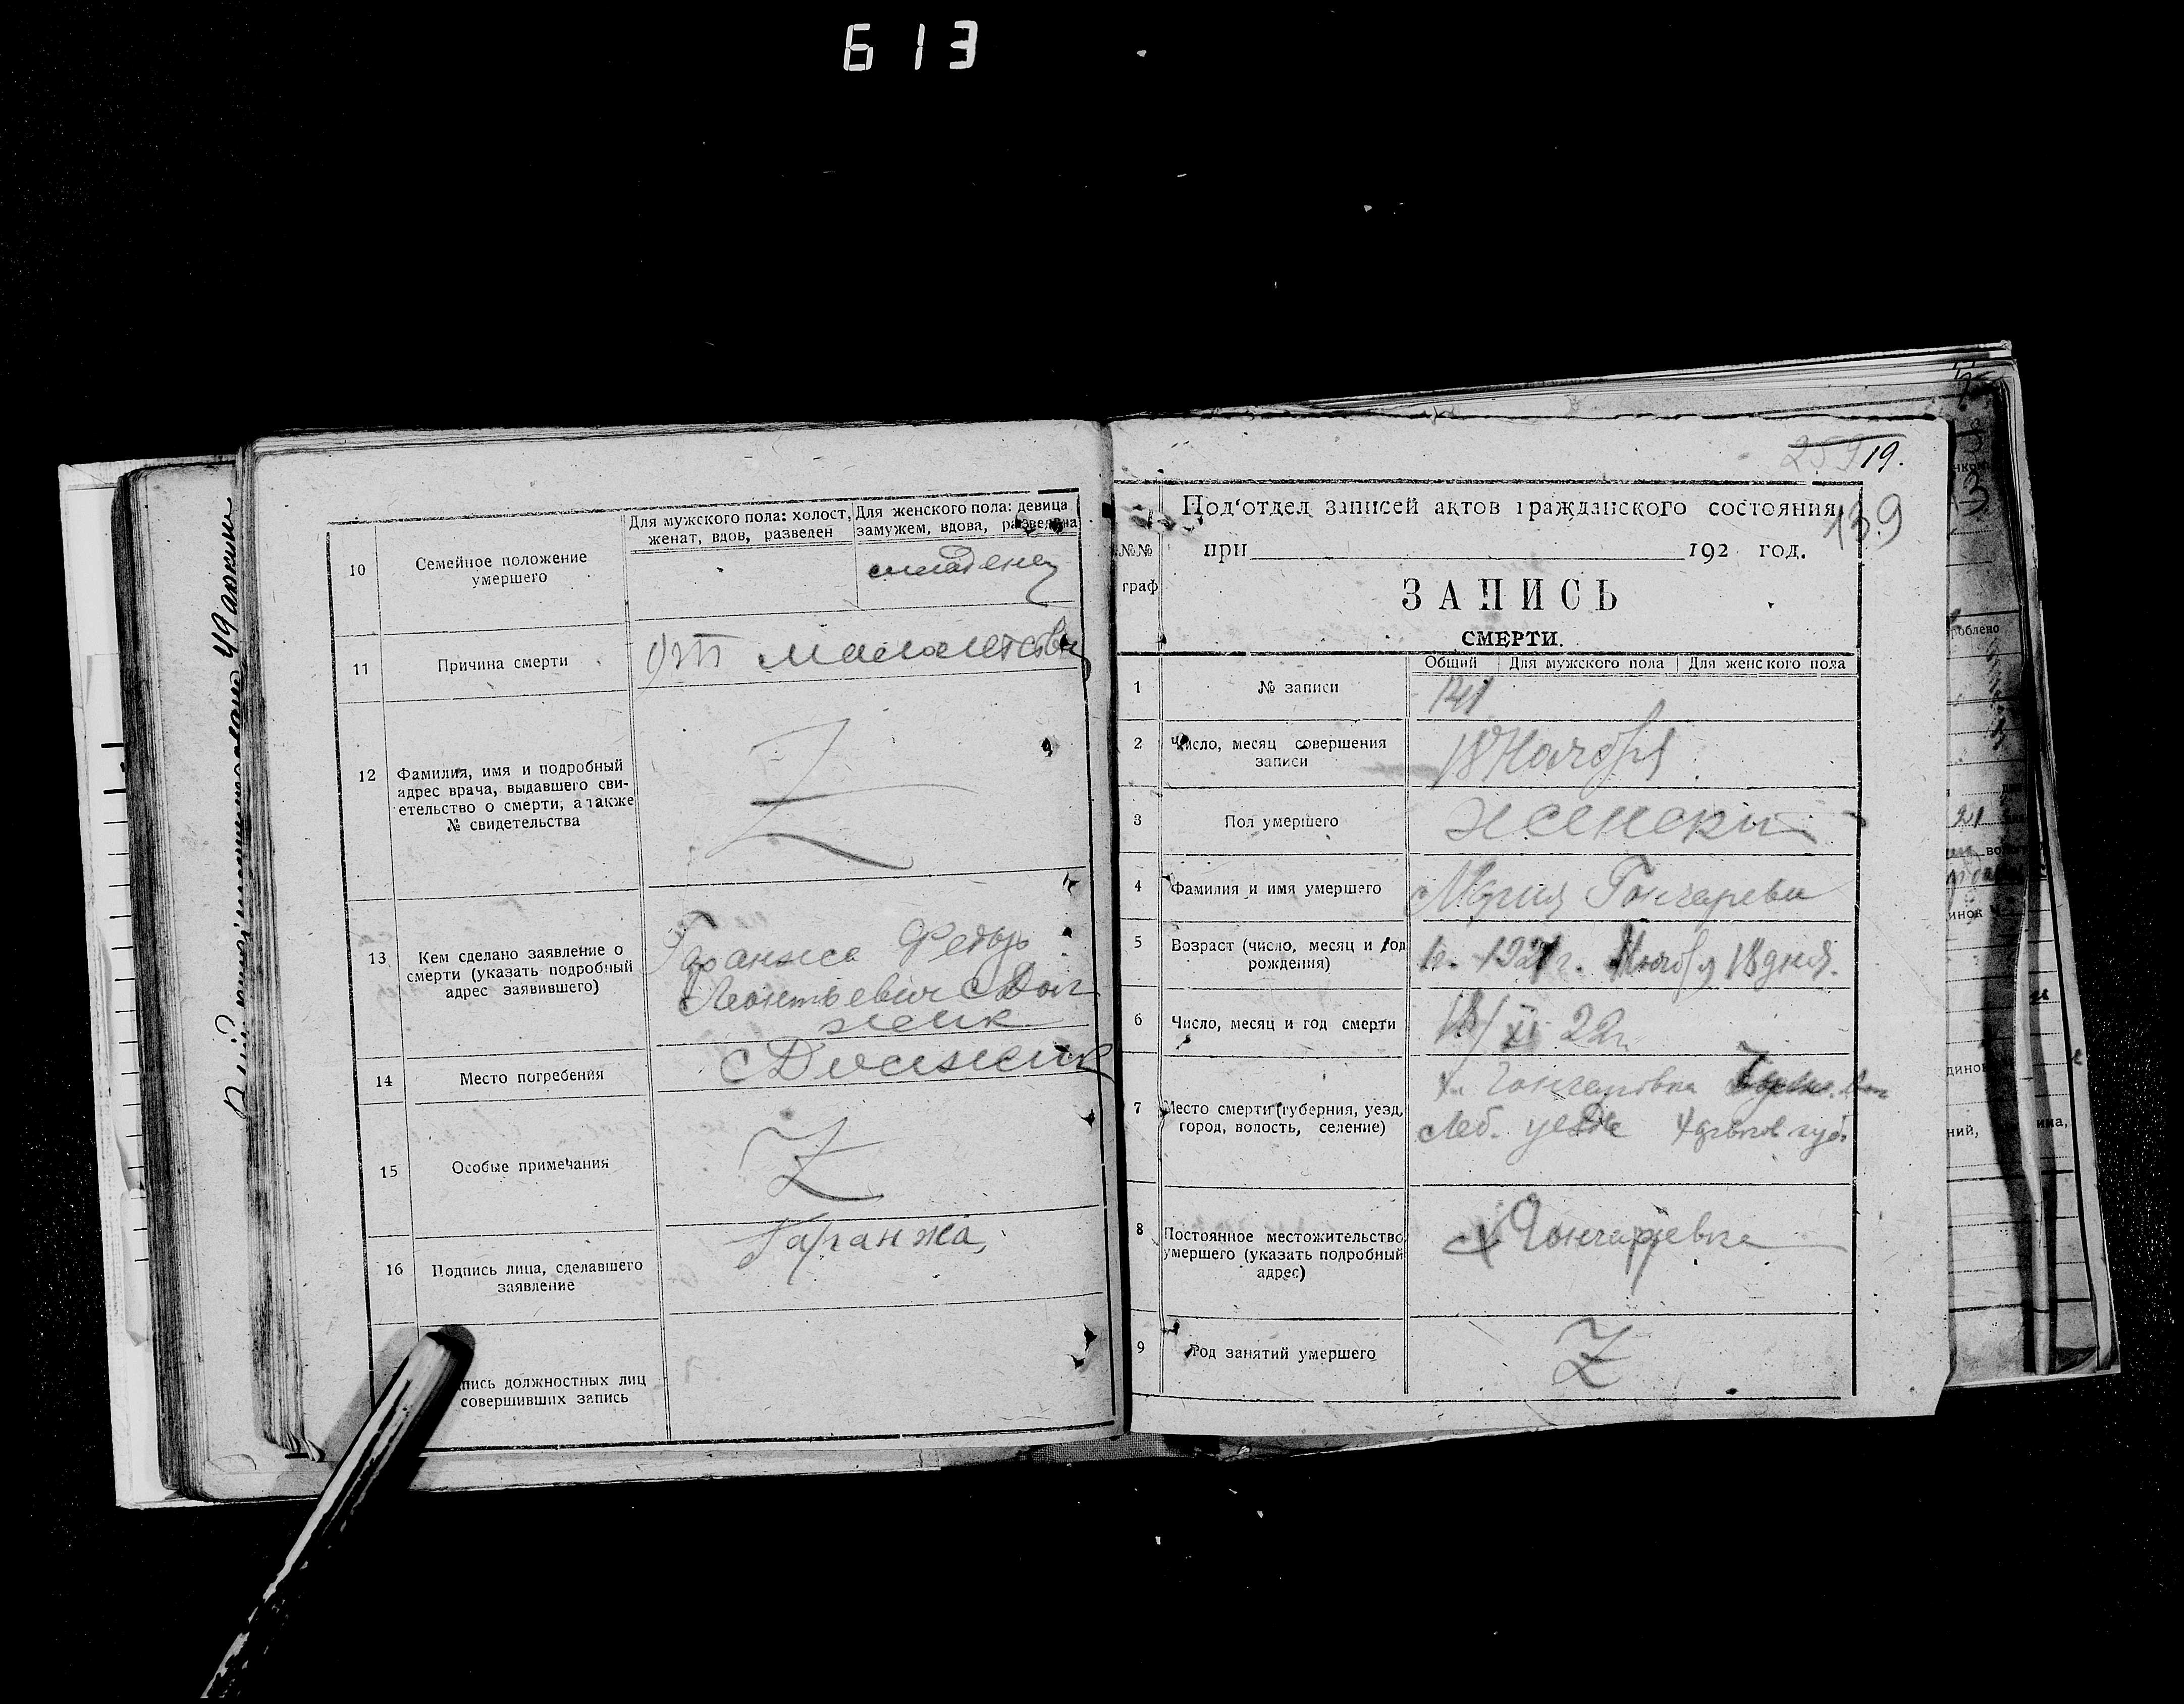 613
10
Семейное положение
умершего
Для мужского пола: холост,
женат, вдов, разведен
Для женского пола: девица
замужем, вдова, разведена
младенец
11
Причина смерти
От малолетства
12
Фамилия, имя и подробный
адрес врача, выдавшего сви-
етельство о смерти, а также
№ свидетельства
Z
13
Кем сделано заявление о
смерти (указать подробный
адрес заявившего)
Гаранжа Федор
Леонтьевич с Дол
жик
14
Место погребения
с Должик
15
Особые примечания
Z
16
Подпись лица, сделавшего
заявление
Гаранжа
пись должностных лиц
совершивших запись
259 19.
139
Под'отдел записей актов гражданского состояния
при 192 год.
№№
граф
ЗАПИСЬ
СМЕРТИ.
Общий Для мужского пола Для женского пола
1
№ записи
141
2
Число, месяц совершения
записи
18 Ноября
3
Пол умершего
женски
4
Фамилия и имя умершего
Мария Гончарева
5
Возраст (число, месяц и год
рождения)
1921 г. Ноября 18 дня.
6
Число, месяц и год смерти
18/XI 22 г.
7
Место смерти (губерния, уезд,
город, волость, селение)
х. Гончаровка
Леб. уезда Харьков губ.
8
Постоянное местожительство
умершего (указать подробный
адрес)
х Гончаревка
9
Род занятий умершего
Z